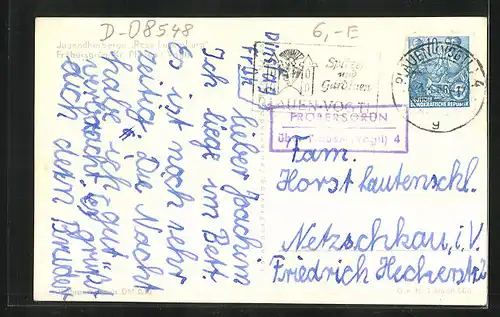 D-08548
6,-E
Jugendherberge "Rosa Luxemburg"
Spitzen
und
Gardinen
PLAUEN (VOGTL) 4
DEUTSCHE
DEMOKRATISCHE REPUBLIK
PLAUEN-VOGTL
PRÖBERSGRÜN
über Plauen (Vogtl) 4
Dienstag
Früh
Lieber Joachim
Ich liege im Bett.
Es ist noch sehr
zeitig. Die Nacht
habe ich gut
verbracht. Es grüßt
dich dein Bruder
Fam.
Horst Lautenschl.
Netzschkau, i.V.
Friedrich Heckerstr.